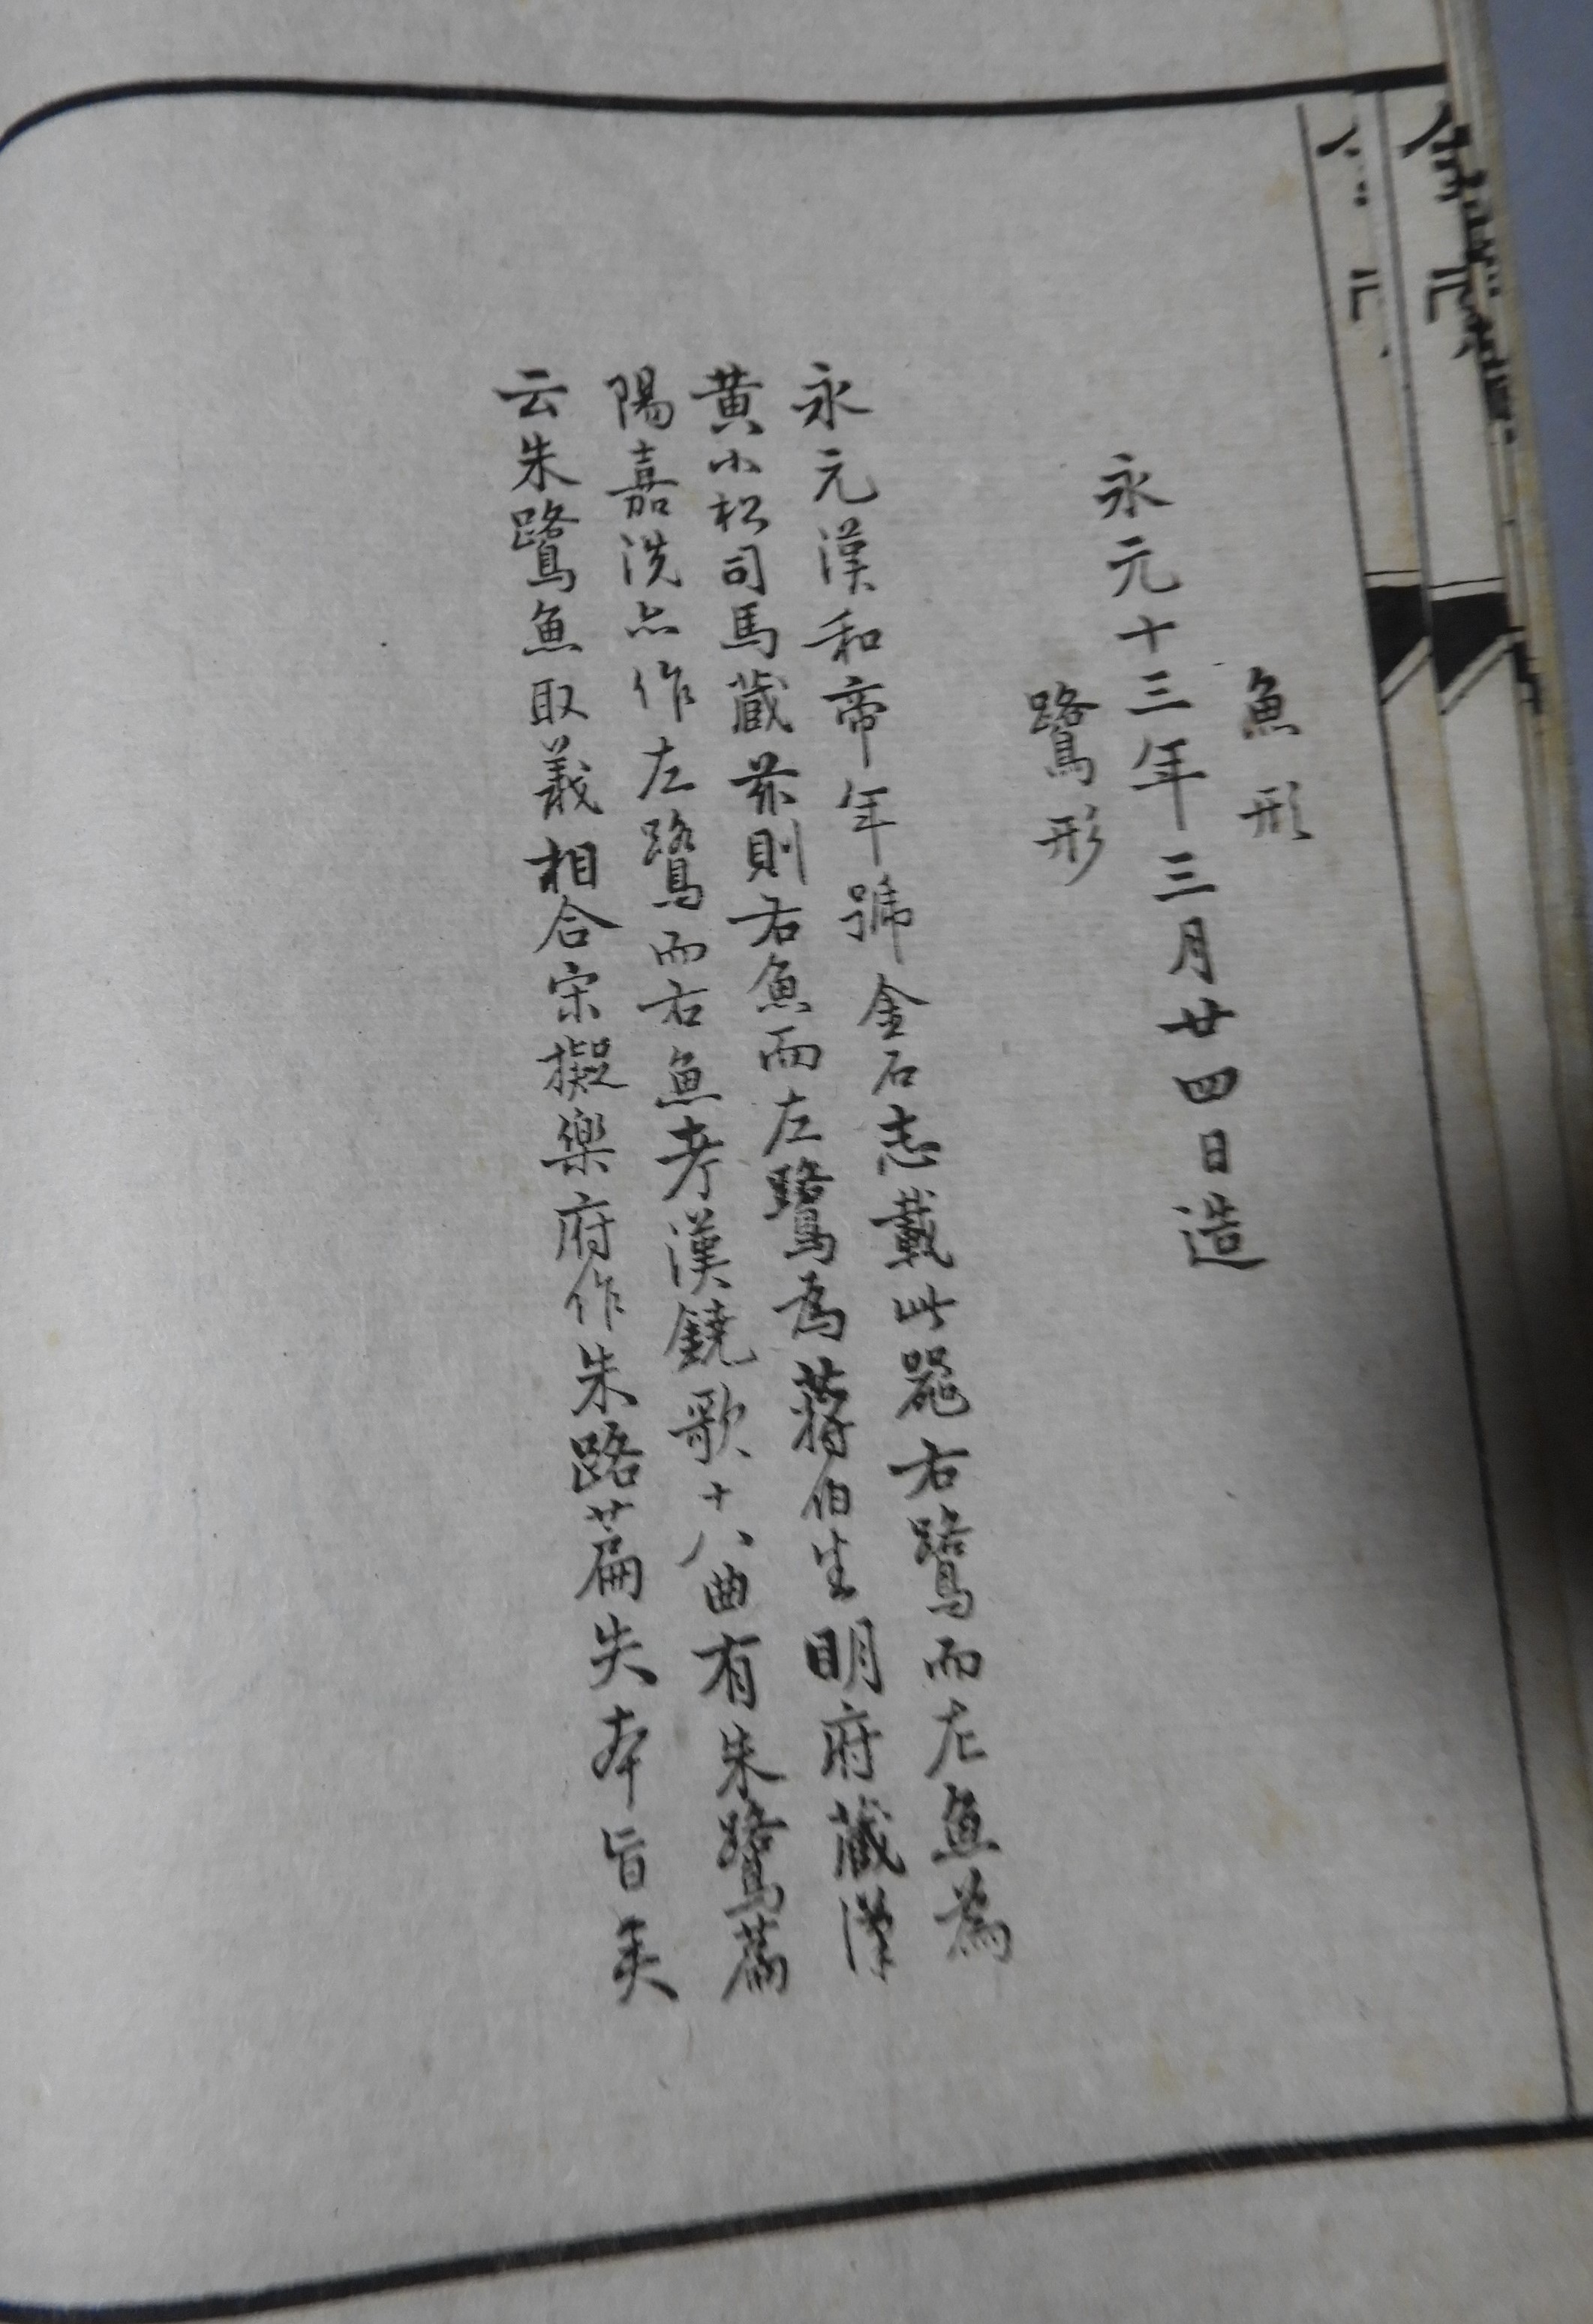 魚形
永元十三年三月廿四日造
鷺形
永元漢和帝年號金石志載此器右鷺而左魚為
黃小松司馬藏茲則右魚而左鷺為蔣伯生明府藏漢
陽嘉洗亦作左鷺而右魚考漢鐃歌十八曲有朱鷺篇
云朱鷺魚取義相合宋擬樂府作朱路篇失本旨矣